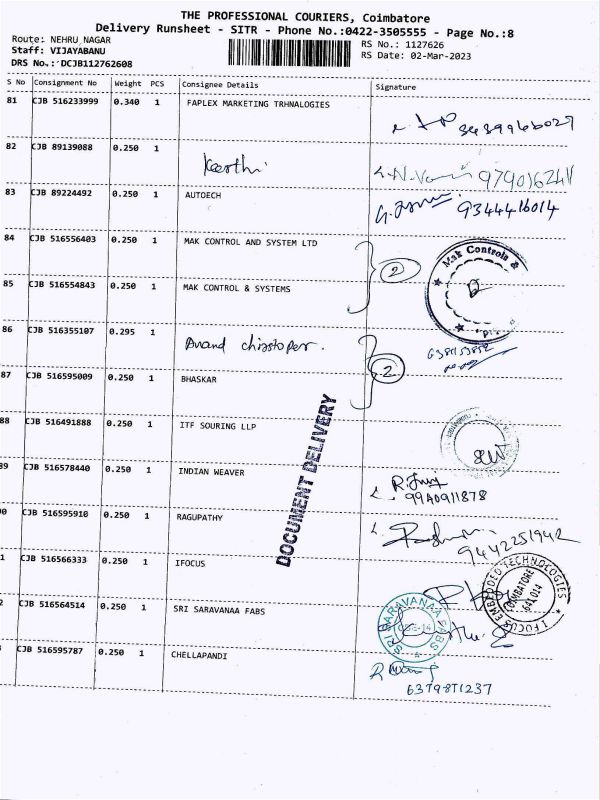 THE PROFESSIONAL COURIERS, Coimbatore
Delivery Runsheet - SITR - Phone No.:0422-3505555 - Page No.:8
Route: NEHRU NAGAR
Staff: VIJAYABANU
DRS No.:'DCJB112762608
RS No.: 1127626
RS Date: 02-Mar-2023
S No Consignment No Weight PCS Consignee Details Signature
81 CJB 516233999 0.340 1 FAPLEX MARKETING TRHNALOGIES
82 CJB 89139088 0.250 1 Keerthi
83 CJB 89224492 0.250 1 AUTOECH 9344416014
84 CJB 516556403 0.250 1 MAK CONTROL AND SYSTEM LTD
2
Mak Controls &
85 CJB 516554843 0.250 1 MAK CONTROL & SYSTEMS
86 CJB 516355107 0.295 1 Anand chirstoper.
2
87 CJB 516595009 0.250 1 BHASKAR
88 CJB 516491888 0.250 1 ITF SOURING LLP
DOCUMENT DELIVERY
89 CJB 516578440 0.250 1 INDIAN WEAVER
9940911878
0 CJB 516595910 0.250 1 RAGUPATHY
9442251942
1 CJB 516566333 0.250 1 IFOCUS
I FOCUS EMBEDDED TECHNOLOGIES
COIMBATORE
641 014
2 CJB 516564514 0.250 1 SRI SARAVANAA FABS
SRI SARAVANAA FABS
CJB 516595787 0.250 1 CHELLAPANDI
6379871237